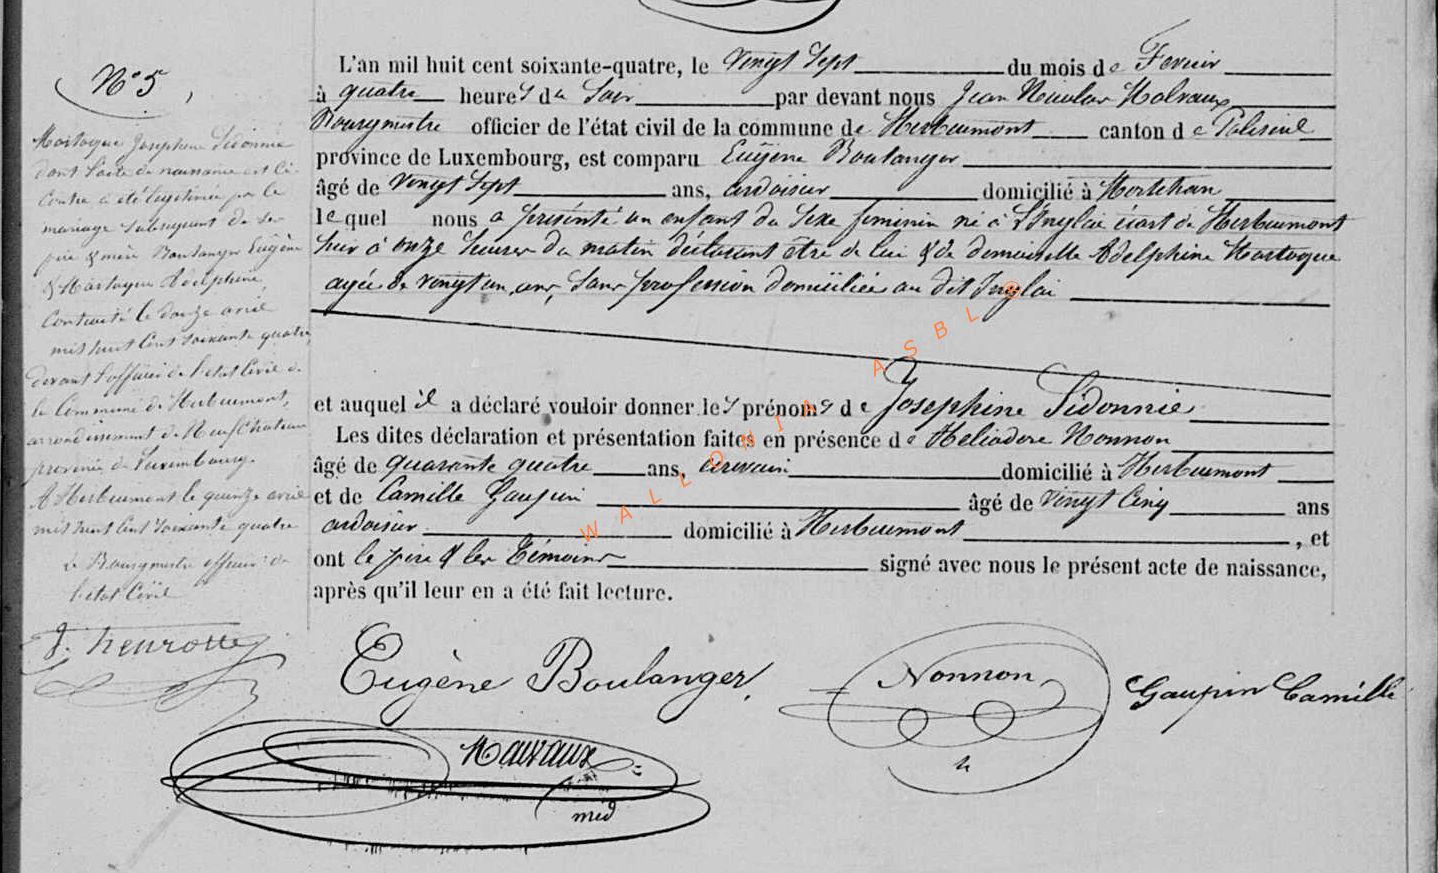 N° 5
Hartoque Josephine Sidonnie
dont l'acte de naissance est ci-
contre a été legitimée par le
mariage subsequent de ses
père & mère Boulanger Eugène
& Hartoque Adelphine,
contracté le douze avril
mil huit cent soixante quatre
devant l'officier de l'état civil de
la commune de Herbeumont,
arrondissement de Neufchateau
province de Luxembourg.
A Herbeumont le quinze avril
mil huit cent soixante quatre
Le Bourgmestre officier de
l'état Civil
L'an mil huit cent soixante-quatre, le vingt sept du mois de Fevrier
à quatre heures du Soir par devant nous Jean Nicolas
Bourgmestre officier de l'état civil de la commune de Herbeumont canton de Paliseul
province de Luxembourg, est comparu Eugène Boulanger
âgé de vingt sept ans, ardoisier domicilié à Mortehan
lequel nous a présenté un enfant du sexe feminin né à Linglai écart de Herbeumont
hier à onze heures du matin déclarant être de lui & de demoiselle Adelphine Hartoque
agée de vingt un ans, sans profession domiciliée au dit Inglai
et auquel il a déclaré vouloir donner les prénoms de Josephine Sidonnie
Les dites déclaration et présentation faites en présence de Heliodore Nonnon
âgé de quarante quatre ans, domicilié à Herbeumont
et de Camille Gaupin âgé de vingt cinq ans
ardoisier domicilié à Herbeumont, et
ont le père & les Témoins signé avec nous le présent acte de naissance,
après qu'il leur en a été fait lecture.
J. henrotte
Eugène Boulanger
Nonnon
Gaupin Camille
WALLONIA ASBL @